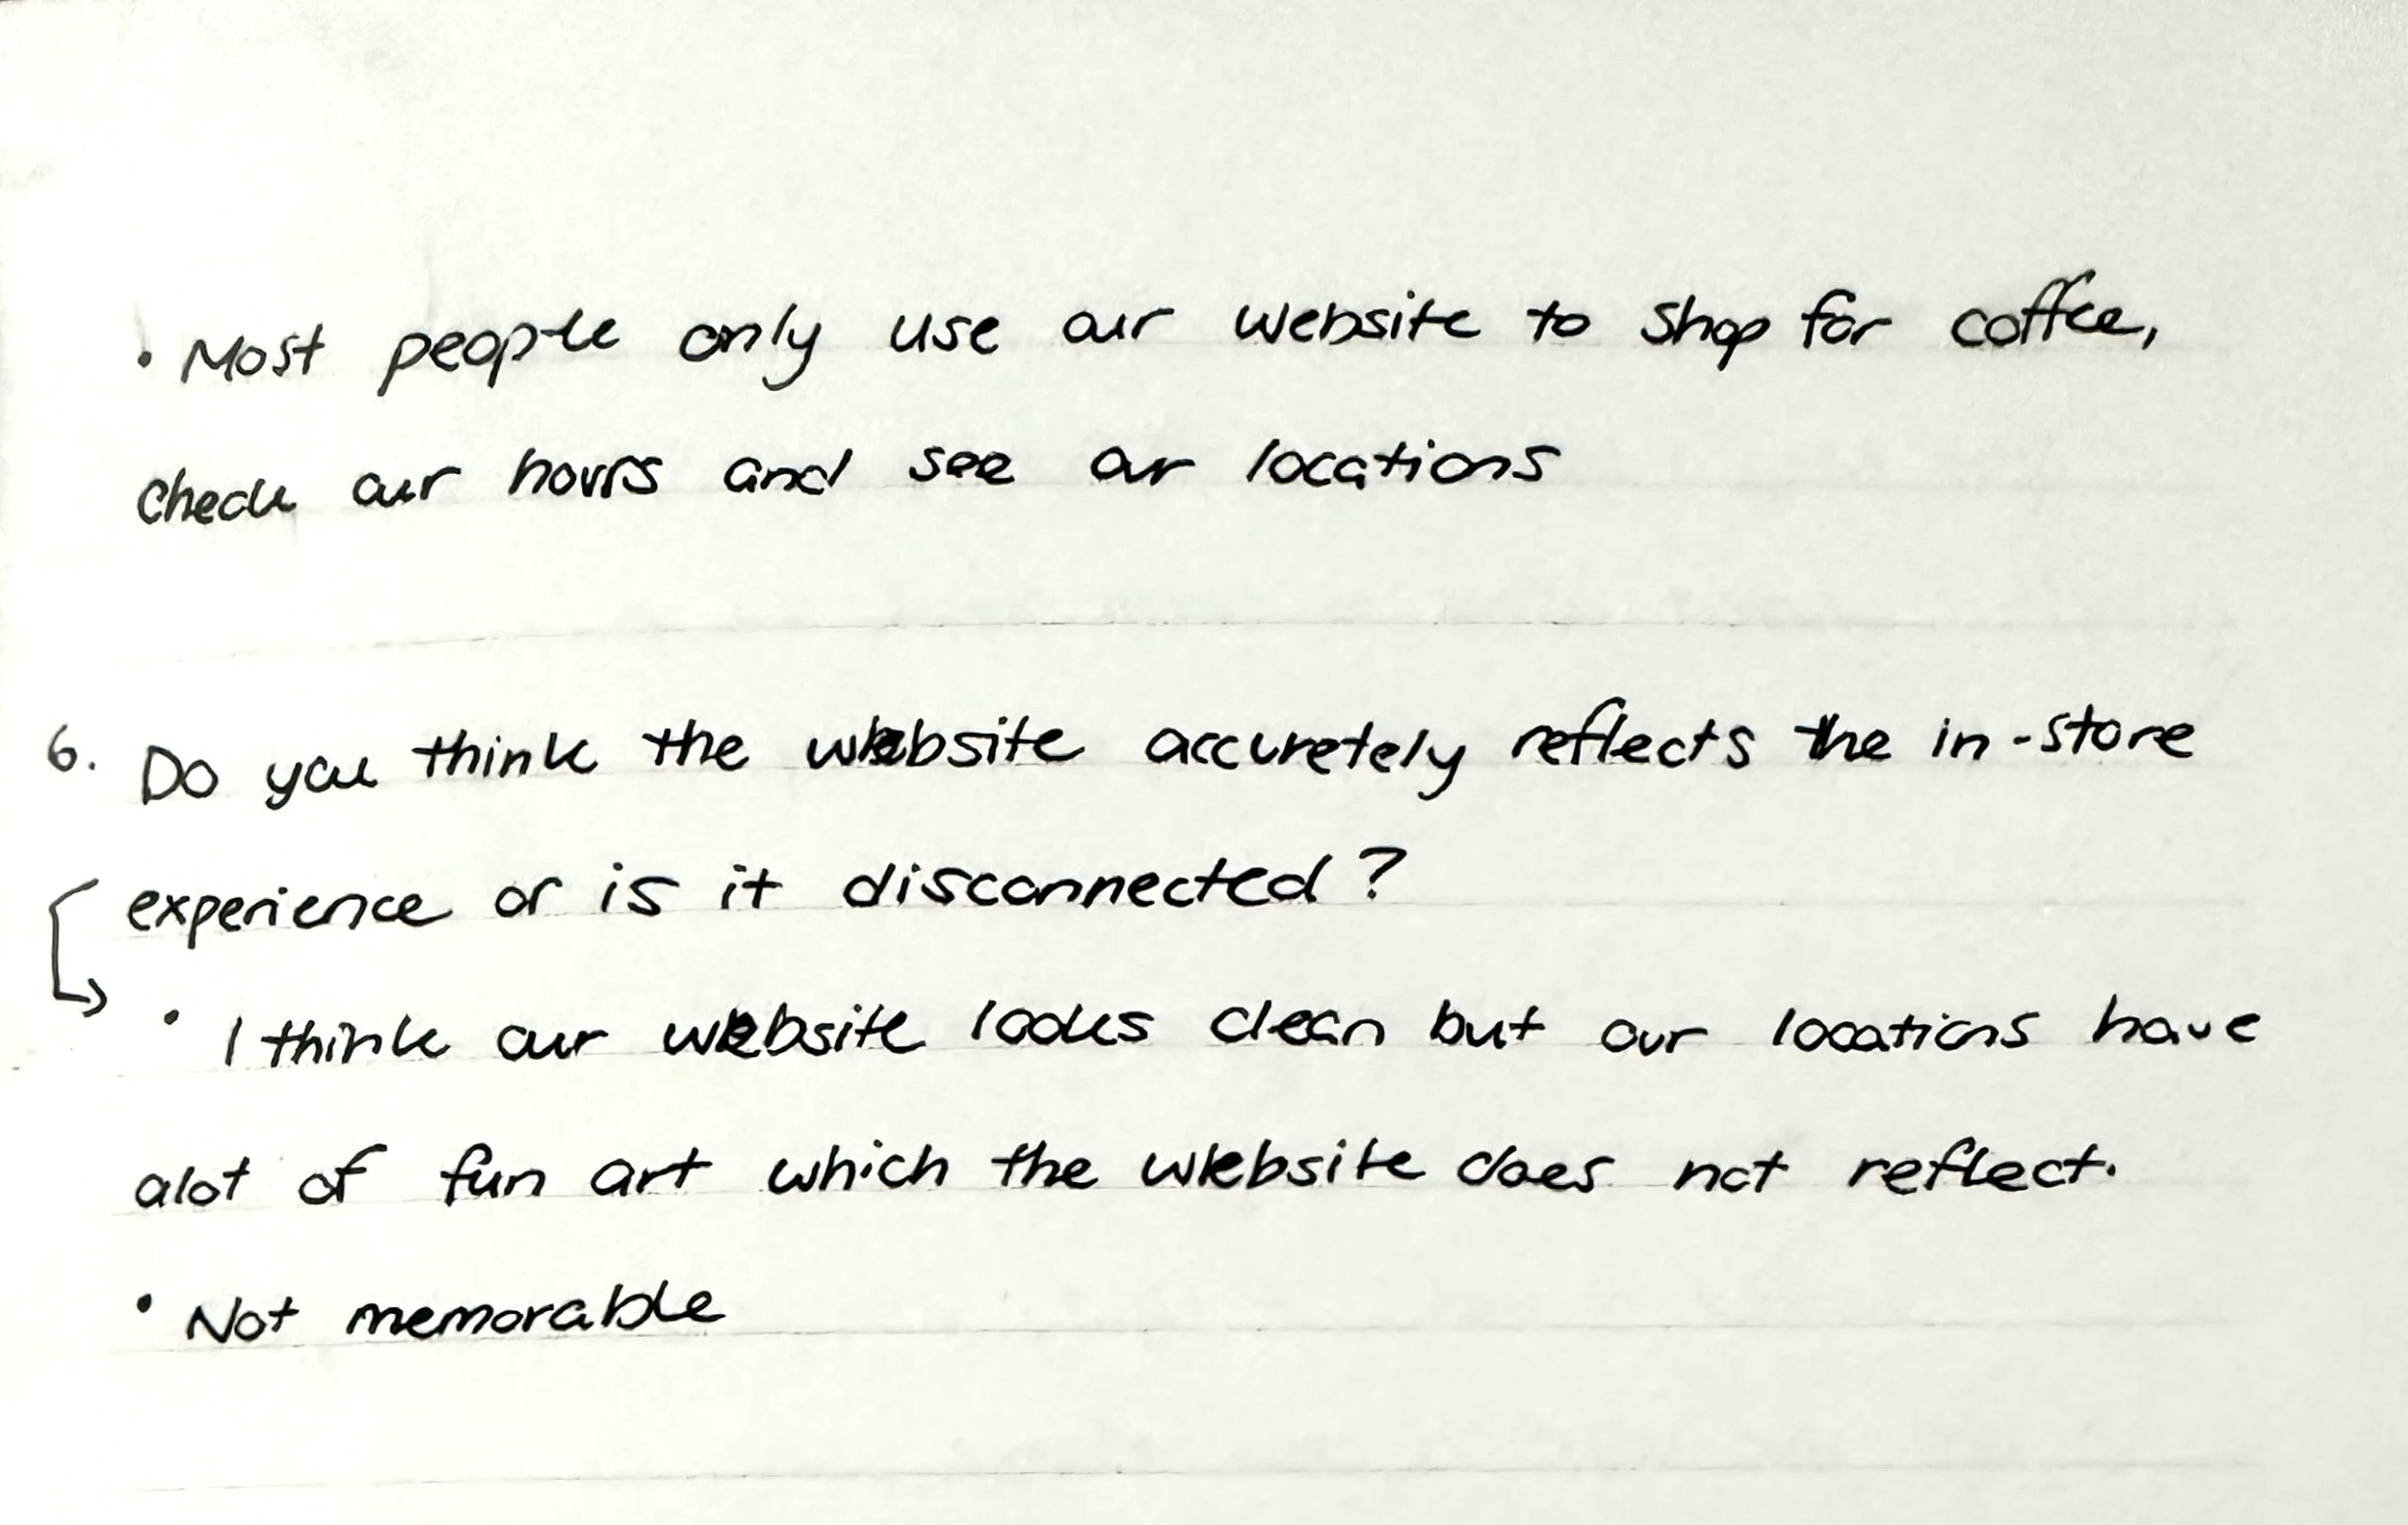 • Most people only use our website to shop for coffee,
check our hours and see our locations
6. Do you think the website accuretely reflects the in-store
experience or is it disconnected?
• I think our website looks clean but our locations have
alot of fun art which the website does not reflect.
• Not memorable